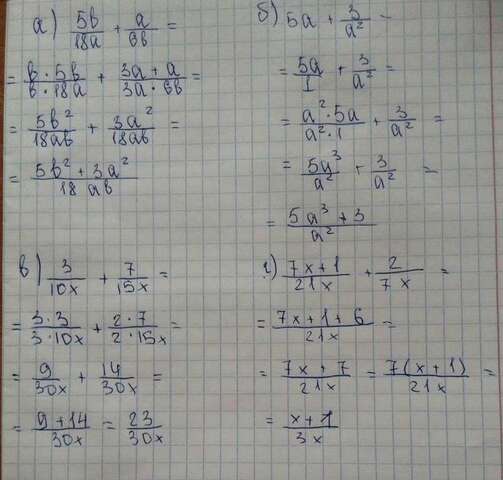 а) 5b/18a + a/6b =
= b · 5b/b · 18a + 3a + a/3a · 6b =
= 5b²/18ab + 3a²/18ab =
= 5b² + 3a²/18ab
б) 5a + 3/a² =
= 5a/1 + 3/a² =
= a² · 5a/a² · 1 + 3/a² =
= 5a³/a² + 3/a² =
= 5a³ + 3/a²
в) 3/10x + 7/15x =
= 3·3/3·10x + 2·7/2·15x =
= 9/30x + 14/30x =
= 9+14/30x = 23/30x
г) 7x+1/21x + 2/7x =
= 7x+1+6/21x =
= 7x+7/21x = 7(x+1)/21x =
= x+1/3x